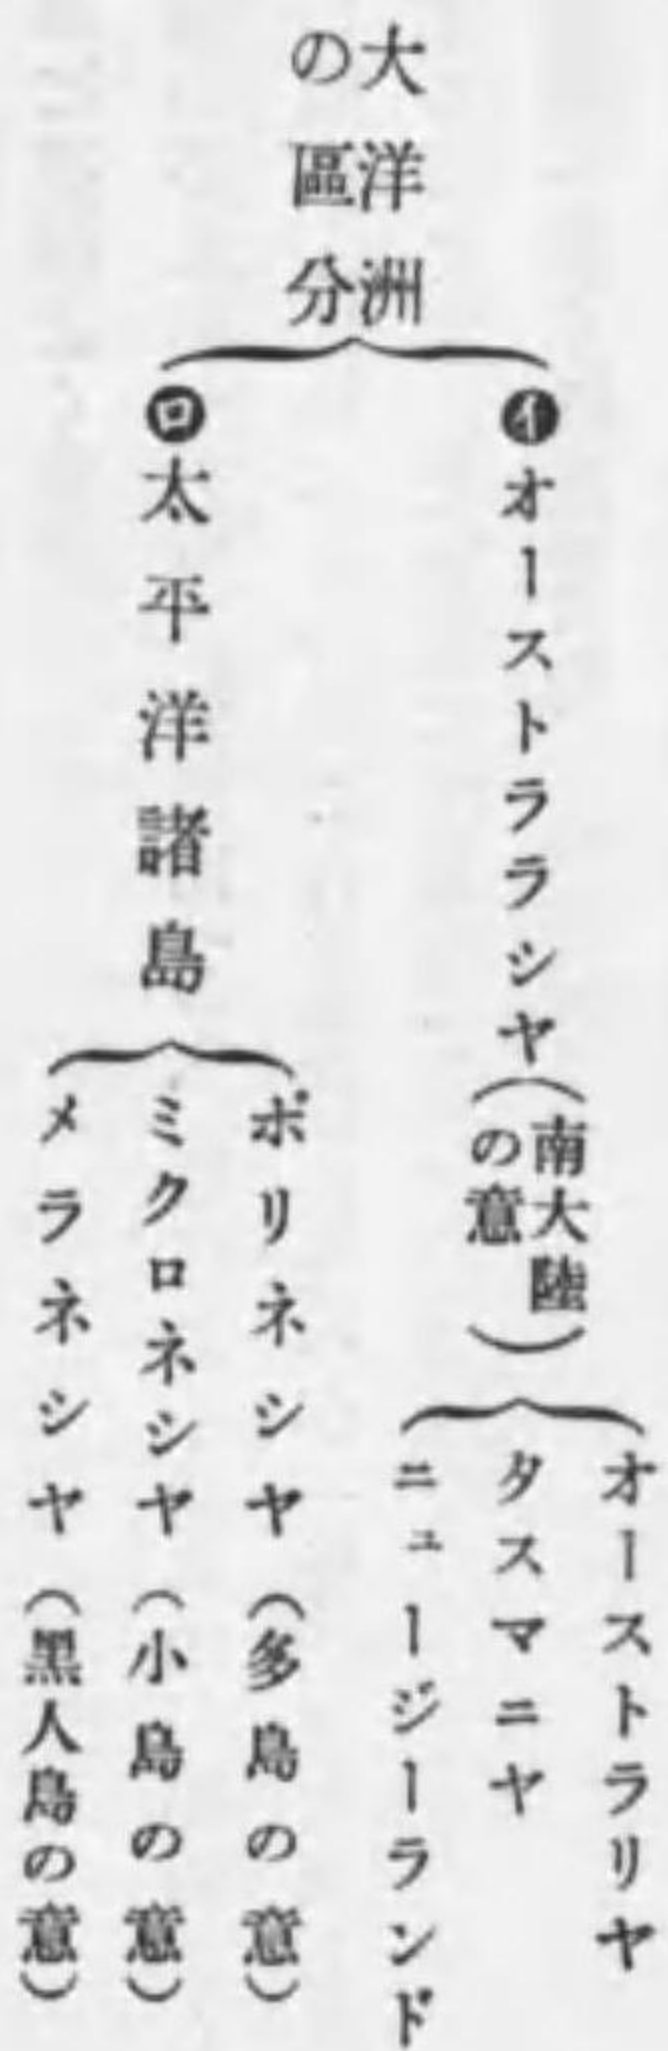 大洋洲
の區分
イオーストララシヤ(南大陸の意)
オーストラリヤ
タスマニヤ
ニュージーランド
ロ太平洋諸島
ポリネシヤ(多島の意)
ミクロネシヤ(小島の意)
メラネシヤ(黑人島の意)